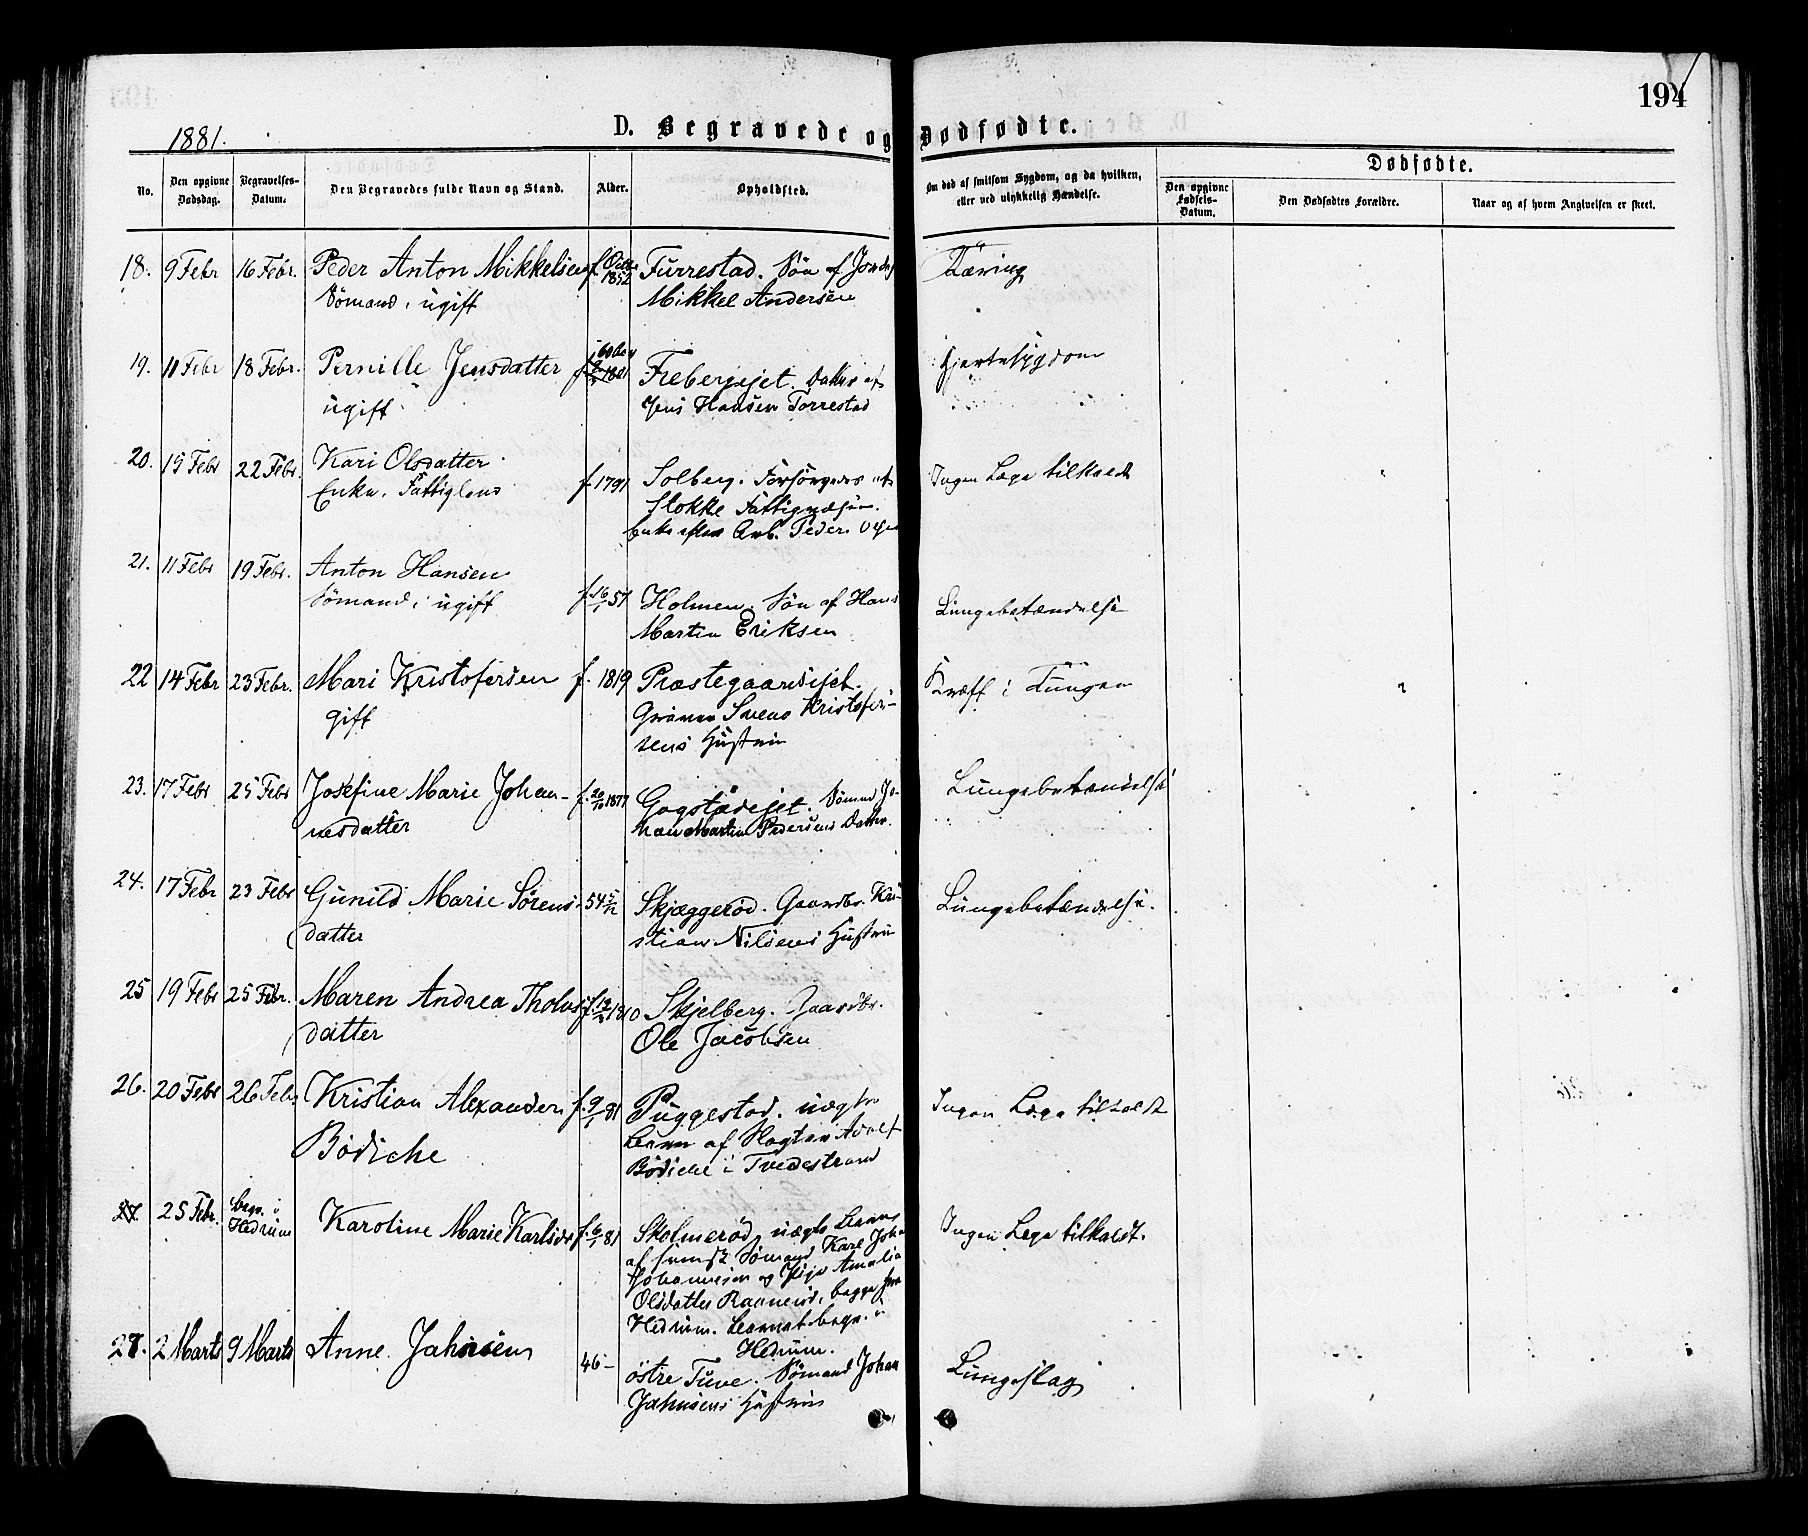 194
1881.
D. Begravede og Dødfødte.
Dødfødte.
No.
Den opgivne Dødsdag.
Begravelses-Datum.
Den Begravedes fulde Navn og Stand.
Alder.
Opholdsted.
Om død af smitsom Sygdom, og da hvilken, eller ved ulykkelig Hændelse.
Den opgivne Fødsels-Datum.
Den Dødfødtes Forældre.
Naar og af hvem Angivelsen er skeet.
18. 9 Febr 16 Febr. Peder Anton Mikkelsen f. 1852 Furrestad. Søn af
Sømand, ugift Mikkel Andersen
Tæring
19. 11 Febr 18 Febr. Pernille Jensdatter Freberejet. Datter af
ugift Jens Hansen Torrestad
Hjertesygdom
20. 15 Febr 22 Febr. Kari Olsdatter f. 1791 Solberg. Forsørgedes af
Enke, Fattiglem Stokke Fattigvæsen.
Enke efter Arb. Peder
Ingen Læge tilkaldt
21. 11 Febr 19 Febr. Anton Hansen
Sømand, ugift f. 16/1 57 Holmen. Søn af Hans
Martin Eriksen
Lungebetændelse
22 14 Febr 23 Febr. Mari Kristofersen f. 1819 Præstegaardsejet.
gift Svend Kristofer-
sens Hustru
Kræft i Tungen
23. 17 Febr 25 Febr Josefine Marie Johan- f. 20/10 1877 Gogstadejet. Sømd Jo-
nesdatter han Martin Pedersens Datter.
Lungebetændelse
24. 17 Febr 23 Febr Gunild Marie Sørens- 54 5/12 Skjæggerød. Gaardbr. Kri-
datter stian Nilsens Hustru
Lungebetændelse.
25 19 Febr 25 Febr. Maren Andrea Tholvs- Skjelberg. Gaardbr.
datter Ole Jacobsen
26. 20 Febr 26 Febr Kristian Alexander f. 9/1 81 Puggestad. uægte
Bødiche Barn af Adolf
Bødiche i Tvedestrand
Ingen Læge tilkaldt
27. 25 Febr. begr. i Karoline Marie Karlsdr f. 6/1 81 Skolmerød, uægte Barn
Hedrum af svensk Sømand Karl Joha
Johannesen og Amalia
Olsdatter begge fra
Hedrum. Barnet begr. i
Hedrum.
Ingen Læge tilkaldt.
27. 2 Marts 9 Marts Anne Jahnsen 46 –
østre Tuve. Sømand Johan
Jahnsens Hustru
Lungeslag